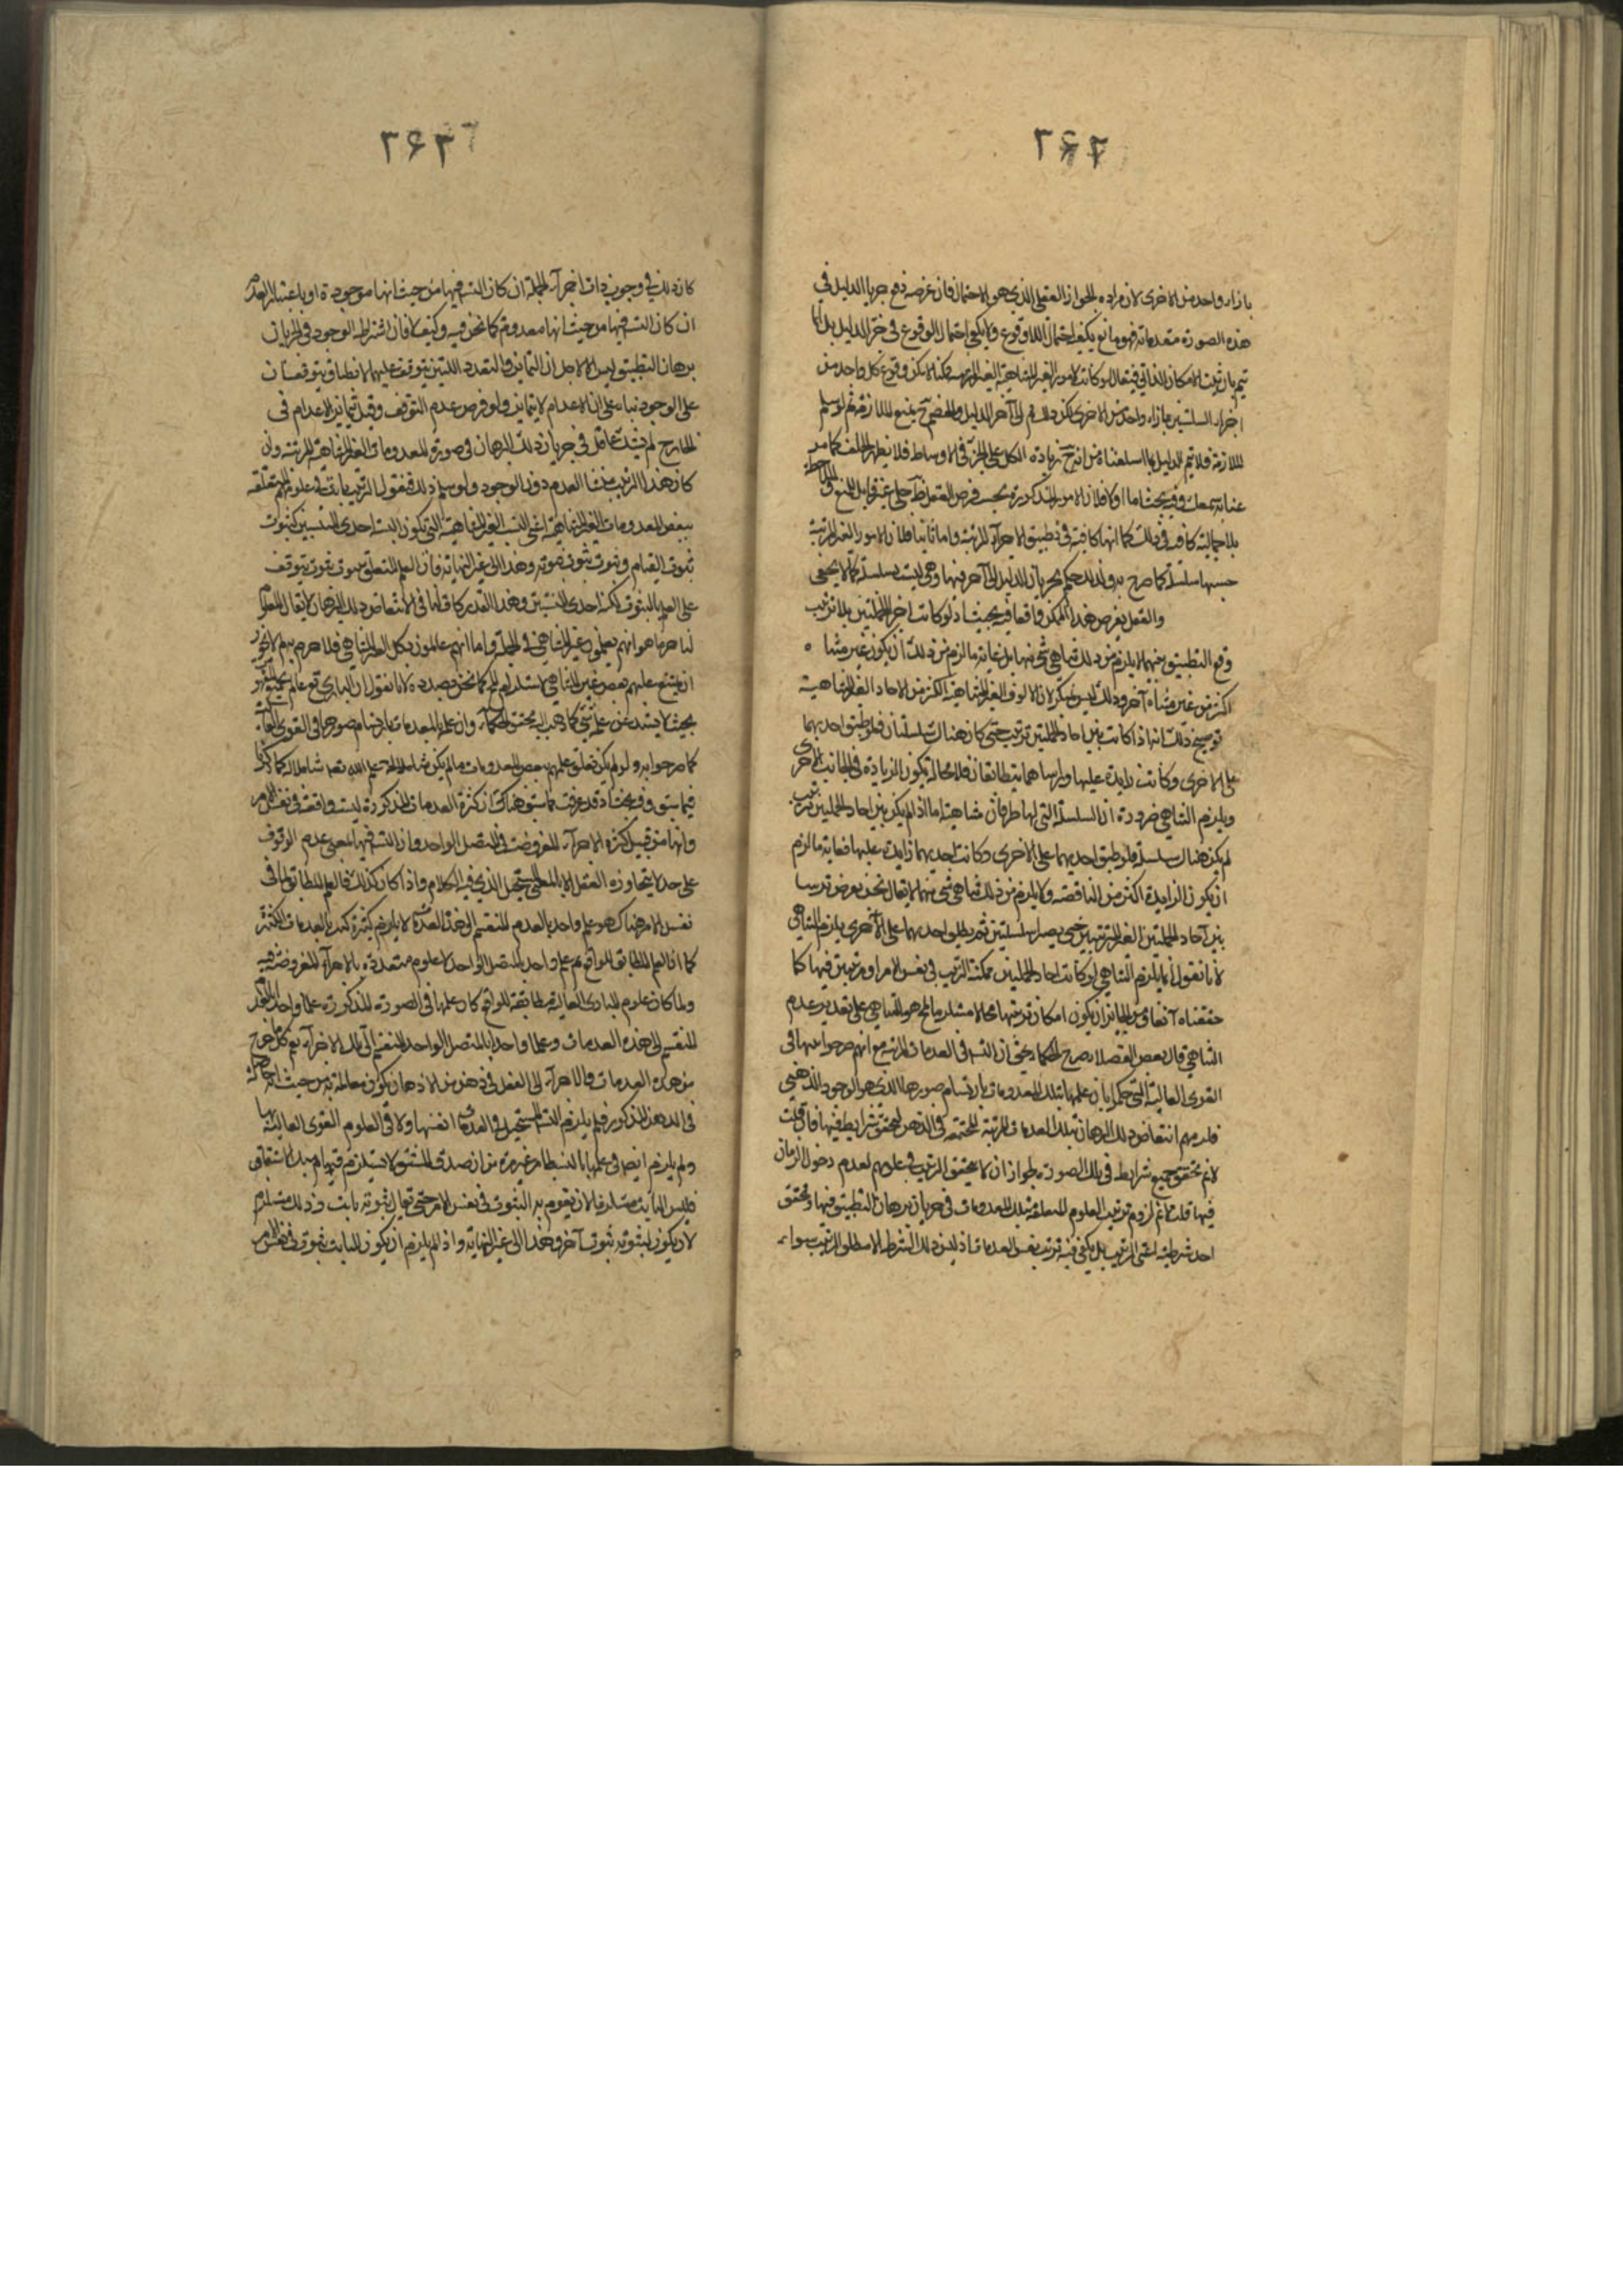 ٢۶٦
بازاء واحد من الاخرى لان مراده بالجواز العقلى الذى هو الاحتمال فان غرضه دفع جريان الدليل فى
هذه الصورة مقدماته فهو مانع يكفيه احتمال اللاوقوع ولا يكفى احتمال الوقوع فى الدليل
يتم بان يثبت الامكان الذاتى فيقال لو كانت الامور الغير المتناهية الغير المرتبة ممكنا لامكن وقوع كل واحد من
اجزاء السلسلتين بازاء واحد من الاخرى لكن ذلك الى آخر الدليل والخصم يمنع الملازمة ثم لو سلم
الملازمة فلا يتم الدليل لما اسلفناه من انه زيادة الكل على الجزء فى الاوساط فلا يظهر الخلف كما مر
وفيه بحث اما اولا فلان الامور المذكورة بحسب فرض العقل غير قابل للمنع
الاجمالية كافية فى ذلك كما انها كافية فى تطبيق الاجزاء المرتبة واما ثانيا فلان الامور الغير المرتبة
حسبها سلسلة كما صرح به ولذلك حكم بجريان الدليل الى آخر فيها وهى ليست سلسلة كما لا يخفى
والعقل يفرض هذا الممكن واقعا فيه بحيث اذ لو كانت اجزاء الجملتين بلا ترتيب
وقع التطبيق بينهما لا يلزم من ذلك تناهى شىء منهما بل غاية ما لزم من ذلك ان يكون غير متناه
اكثر من غير متناه آخر وذلك ليس بمنكر لان الالوف الغير المتناهية اكثر من الآحاد الغير المتناهية
توضيح ذلك انه اذا كانت بين آحاد الجملتين ترتيب حتى كان هناك سلسلتان فلو طبق احديهما
على الاخرى وكانت زايدة عليها وراساهما يتطابقان فلا محالة يكون الزيادة فى الجانب الاخر
ويلزم التناهى ضرورة ان السلسلة التى لها طرفان متناهية اما اذا لم يكن بين آحاد الجملتين ترتيب
لم يكن هناك سلسلة فلو طبق احديهما على الاخرى وكانت احديهما زايدة عليها فغاية ما لزم
ان يكون الزايدة اكثر من الناقصة ولا يلزم من ذلك تناهى شىء منهما لا يقال نحن نفرض ترتيبا
بين آحاد الجملتين الغير المرتبتين حتى يصير سلسلتين ثم يطبق احديهما على الاخرى يلزم التناهى
لانا نقول انما يلزم التناهى لو كانت آحاد الجملتين ممكنة الترتيب فى نفس الامر او مرتبتين فيها كما
حققناه آنفا ومن الجايز ان يكون امكان ترتيبهما محالا مستلزما لمح هو التناهى على تقدير عدم
التناهى قال بعض الفضلاء صرح الحكماء بحث ان التسلسل فى العدمات المرتبة مع انهم صرحوا بانها فى
القوى العالية التى حكموا بان علمها بتلك المعدومات بارتسام صورها الذى هو الوجود الذهنى
فلزمهم انتقاض ذلك البرهان بتلك العدمات المرتبة المجتمعة فى الذهن لتحقق شرايطه فيها فان قلت
لا نم تحقق جميع شرايطه فى تلك الصورة لجواز ان لا يتحقق الترتيب فى علومهم لعدم دخول الزمان
فيها قلت ما نم لزوم ترتيب العلوم المتعلقة بتلك المعدومات فى جريان برهان التطبيق فيها وتحقق
احد شرطيه اعنى الترتيب بل يكفى فيه ترتيب نفس العدمات اذ ليس ذلك الشرط الا مطلق الترتيب سواء
٢۶٣
كان ذلك فى وجود ذات اجزاء الجملة ان كان التسلسل فيها من حيث انها موجودة او باعتبار العدم
ان كان التسلسل فيها من حيث انها معدومة كما نحن فيه وكيف لا فان اشتراط الوجود فى جريان
برهان التطبيق ليس الا لاجل ان التمايز والتعدد اللذين يتوقف عليهما الانطباق يتوقفان
على الوجود بناء على ان الاعدام لا يتمايز ولو فرض عدم التوقف وقيل بتمايز الاعدام فى
الخارج لم يشك عاقل فى جريان ذلك البرهان فى صورة المعدومات الغير المتناهية المرتبة وان
كان هذا الترتيب منشأ العدم دون الوجود ولو سلم ذلك فنقول الترتيب ثابت فى علومهم المتعلقة
ببعض المعدومات الغير المتناهية اعنى النسب الغير المتناهية التى تكون النسبة احدى المنتسبين كثبوت
ثبوت القيام وثبوت ثبوت ثبوته وهذا الى غير النهاية فان العلم المتعلق بثبوت ثبوت يتوقف
على العلم بالثبوت لكنه احدى المنتسبين وهذا القدر كاف لنا فى الانتقاض ذلك البرهان لا يقال المعلوم
لنا جزما هو انهم يعلمون غير المتناهى فى الجملة واما انهم عالمون بكل الغير المتناهى فلا جزم به لم لا يجوز
ان يمتنع علمهم ببعض غير المتناهى لاستلزامه المح كما نحن بصدده لانا نقول ان البارى تع عالم بجميع الامور
بحيث لا يشذ عن علمه شىء كما ذهب اليه محققو الحكماء وان علم المعدمات بارتسام صورها فى القوى العالية
كما صرحوا به ولو لم يكن تعلق علمهم ببعض المعدومات ما لم يكن شاملا علمه تعالى شاملا له كما ذكرنا
فيما سبق وفيه بحث اذ قد عرفت مما سبق هناك ان كثرة العدمات المذكورة ليست واقعة فى نفس الامر
وانها من قبيل كثرة الاجزاء المفروضة فى المتصل الواحد وان التسلسل فيها بمعنى عدم الوقوف
على حد لا يتجاوزه العقل لا بالمعنى المستحيل الذى فيه الكلام واذا كان كذلك فالعلم المطابق لما فى
نفس الامر هناك هو علم واحد بالعدم المنقسم الى هذه العدمات لا علوم كثيرة بالعدمات الكثيرة
كما ان العلم المطابق للواقع هو علم واحد بالمتصل الواحد لا علوم متعددة بالاجزاء المفروضة فيه
ولما كان علوم المبادى العالية مطابقة للواقع كان علمها فى الصورة المذكورة علما واحدا بالعدم
المنقسم الى هذه العدمات وعلما واحدا بالمتصل الواحد المنقسم الى تلك الاجزاء نعم كل ما خرج
من هذه العدمات والاجزاء الى الفعل فى ذهن من الاذهان يكون عالمة به من حيث انه حاصل
فى الذهن المذكور فلم يلزم التسلسل المستحيل فى العدمات انفسها ولا فى العلوم القوى العالية بها
ولم يلزم ايضا فى علمها بالنسب لما مر غير مرة من ان صدق المشتق لا يستلزم قيام مبدأ الاشتقاق
فليس الثابت مستلزما لان يقوم به الثبوت فى نفس الامر حتى يقال ثبوته ثابت وذلك مستلزم
لان يكون لثبوته ثبوت آخر وهذا الى غير النهاية واذا لم يلزم ان يكون للثابت ثبوت فى نفس الامر